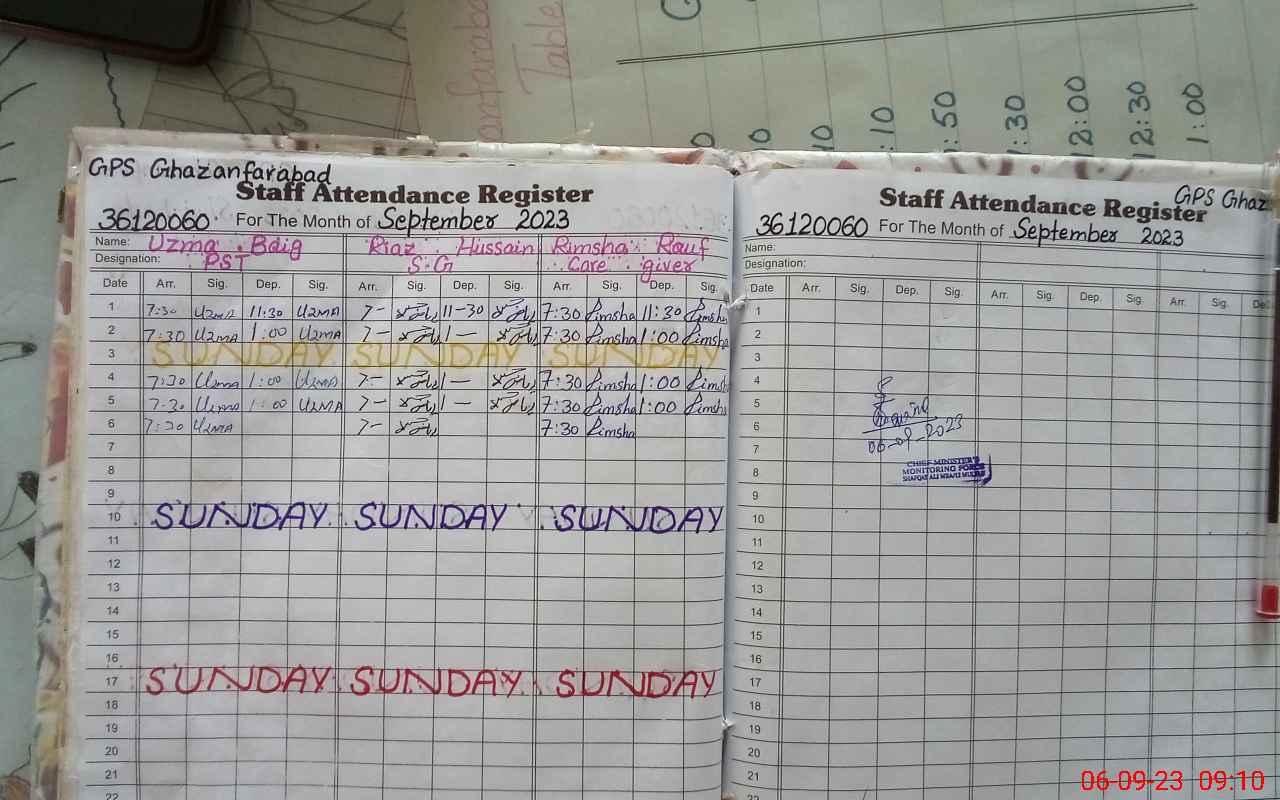 arafaraba
Table
:10
:50
7:30
12:00
12:30
1:00
GPS Ghazanfarabad
Staff Attendance Register
36120060 For The Month of September 2023
Name: Uzma Baig Riaz Hussain Rimsha Rauf
Designation: PST S.G Care giver
Date Arr. Sig. Dep. Sig. Arr. Sig. Dep. Sig. Arr. Sig. Dep. Sig.
1 7:30 UzmA 11:30 UzmA 7- 11-30 7:30 Rimsha 11:30 Rimsha
2 7:30 UzmA 1:00 UzmA 7- 1- 7:30 Rimsha 1:00 Rimsha
3 SUNDAY SUNDAY SUNDAY
4 7:30 Uzma 1:00 Uzma 7- 1- 7:30 Rimsha 1:00 Rimsha
5 7-30 Uzma 1:00 UzmA 7- 1- 7:30 Rimsha 1:00 Rimsha
6 7:30 UzmA 7- 7:30 Rimsha
7
8
9
10 SUNDAY SUNDAY SUNDAY
11
12
13
14
15
16
17 SUNDAY SUNDAY SUNDAY
18
19
20
21
22
GPS Ghaz
Staff Attendance Register
36120060 For The Month of September 2023
Name:
Designation:
Date Arr. Sig. Dep. Sig. Arr. Sig. Dep. Sig. Arr. Sig. De
1
2
3
4
5
6
7
8
9
10
11
12
13
14
15
16
17
18
19
20
21
06-09-2023
CHIEF MINISTER'S
MONITORING FORCE
06-09-23 09:10